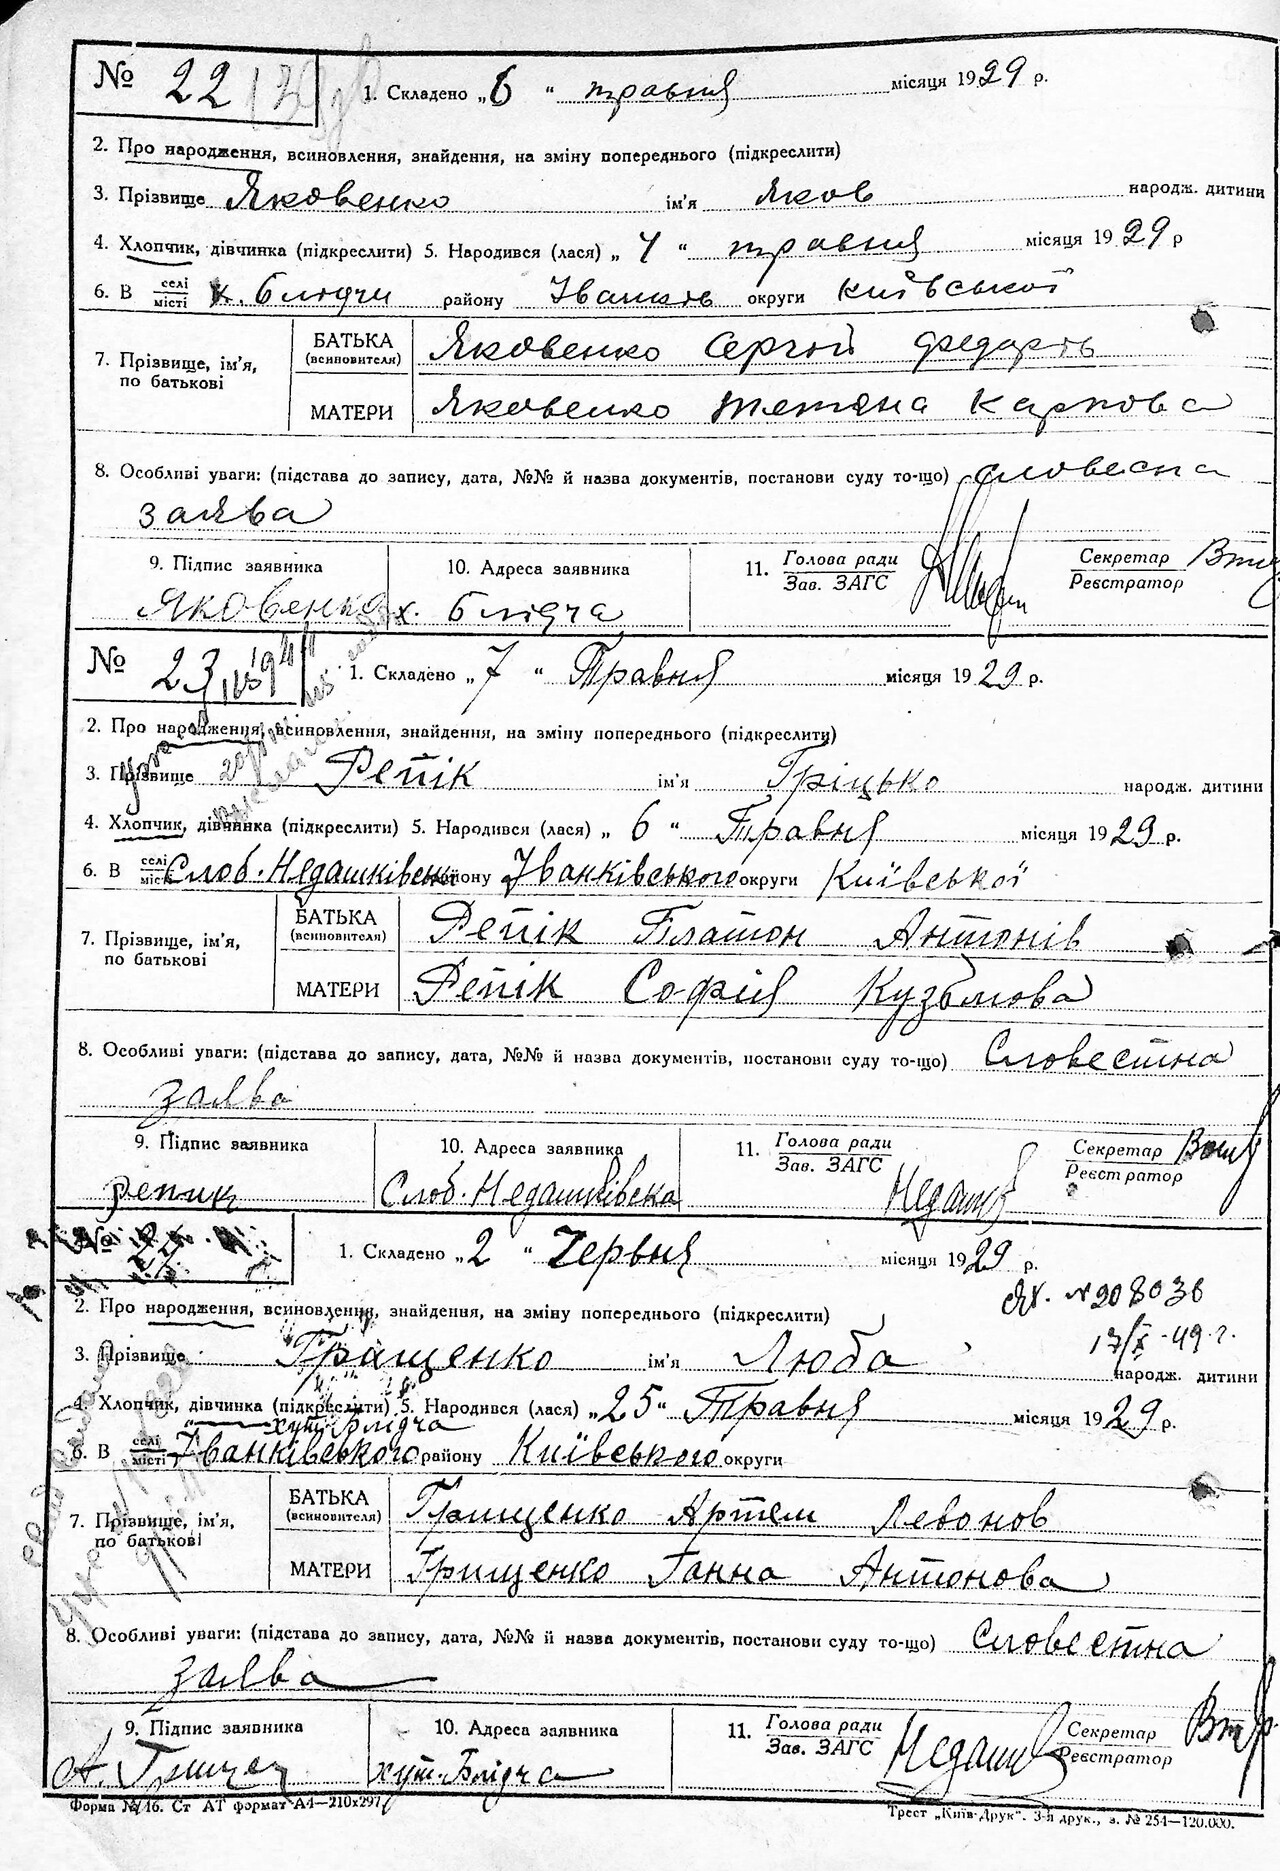 № 22
1. Складено „6“ травня місяця 1929 р.
2. Про народження, всиновлення, знайдення, на зміну попереднього (підкреслити)
3. Прізвище Яковенко ім'я Яков народж. дитини
4. Хлопчик, дівчинка (підкреслити) 5. Народився (лася) „4“ травня місяця 1929 р
6. В селі місті х. Блідчи району Іванків округи Київської
7. Прізвище, ім'я, по батькові
БАТЬКА (всиновителя) Яковенко Сергій Федорів
МАТЕРИ Яковенко Тетяна Карпова
8. Особливі уваги: (підстава до запису, дата, №№ й назва документів, постанови суду то-що) словесна
заява
9. Підпис заявника 10. Адреса заявника 11. Голова ради Зав. ЗАГС Секретар Реєстратор
Яковенко х. Блідча
№ 23
1. Складено „7“ Травня місяця 1929 р.
2. Про народження, всиновлення, знайдення, на зміну попереднього (підкреслити)
3. Прізвище Репік ім'я Гріцько народж. дитини
4. Хлопчик, дівчинка (підкреслити) 5. Народився (лася) „6“ Травня місяця 1929 р.
6. В селі місті Слоб. Недашківська району Іванківського округи Київської
7. Прізвище, ім'я, по батькові
БАТЬКА (всиновителя) Репік Платон Антонів
МАТЕРИ Репік Софія Кузьмова
8. Особливі уваги: (підстава до запису, дата, №№ й назва документів, постанови суду то-що) Словестна
заява
9. Підпис заявника 10. Адреса заявника 11. Голова ради Зав. ЗАГС Секретар Реєстратор
Репик Слоб. Недашківска
№ 24
1. Складено „2“ Червня місяця 1929 р.
2. Про народження, всиновлення, знайдення, на зміну попереднього (підкреслити)
№ 208036
17/X-49 г.
3. Прізвище Гращенко ім'я Люба народж. дитини
4. Хлопчик, дівчинка (підкреслити) 5. Народився (лася) „25“ Травня місяця 1929 р.
хут. Блідча
6. В селі місті Іванківського району Київського округи
7. Прізвище, ім'я, по батькові
БАТЬКА (всиновителя) Грищенко Артем Левонов
МАТЕРИ Грищенко Ганна Антонова
8. Особливі уваги: (підстава до запису, дата, №№ й назва документів, постанови суду то-що) Словестна
заява
9. Підпис заявника 10. Адреса заявника 11. Голова ради Зав. ЗАГС Секретар Реєстратор
хут. Блідча
Форма № 16. Ст АТ формат А4—210х297
Трест „Київ-Друк“. 3-я друк., з. № 254—120.000.